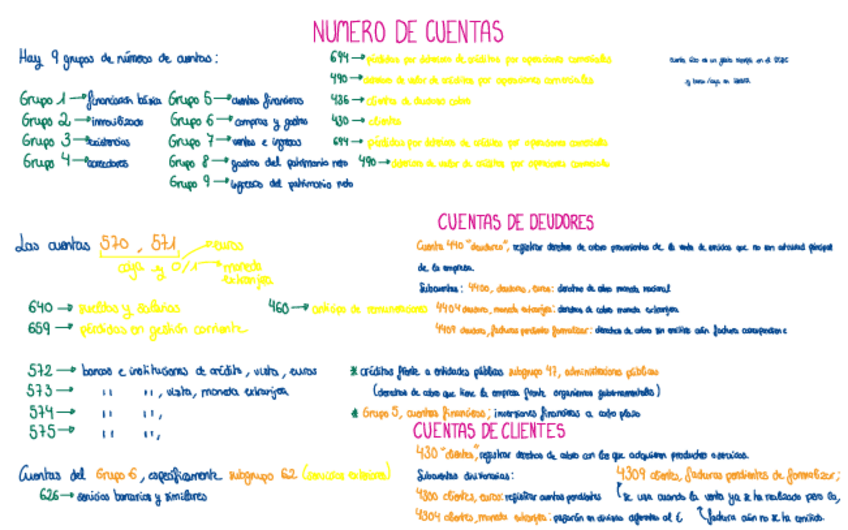 NUMERO DE CUENTAS
Hay 9 grupos de números de cuentas:
Grupo 1 → financiación básica
Grupo 2 → inmovilizado
Grupo 3 → existencias
Grupo 4 → acreedores
Grupo 5 → cuentas financieras
Grupo 6 → compras y gastos
Grupo 7 → ventas e ingresos
Grupo 8 → gastos del patrimonio neto
Grupo 9 → ingresos del patrimonio neto
694 → pérdidas por deterioro de créditos por operaciones comerciales
490 → deterioro de valor de créditos por operaciones comerciales
436 → clientes de dudoso cobro
430 → clientes
694 → pérdidas por deterioro de créditos por operaciones comerciales
490 → deterioro de valor de créditos por operaciones comerciales
Las cuentas 570, 571
caja y 0/1 → euros
→ moneda extranjera
640 → sueldos y salarios
460 → anticipo de remuneraciones
659 → pérdidas en gestión corriente
572 → bancos e instituciones de crédito, vista, euros
573 → " ", vista, moneda extranjera
574 → " ",
575 → " ",
Cuentas del Grupo 6, específicamente subgrupo 62 (servicios exteriores)
626 → servicios bancarios y similares
CUENTAS DE DEUDORES
Cuenta 440 "deudores", registrar derechos de cobro provenientes de la venta de servicios que no son actividad principal
de la empresa.
Subcuentas: 4400, deudores, euros: derechos de cobro moneda nacional
4404 deudores, moneda extranjera: derechos de cobro moneda extranjera
4409 deudores, facturas pendientes formalizar: derechos de cobro sin emitirse aún factura correspondiente
* créditos frente a entidades públicas subgrupo 47, administraciones públicas
(derechos de cobro que tiene la empresa frente organismos gubernamentales)
* Grupo 5, cuentas financieras; inversiones financieras a corto plazo
CUENTAS DE CLIENTES
430 "clientes", registrar derechos de cobro con los que adquieren productos o servicios.
Subcuentas divisionarias:
4300 clientes, euros: registrar cuentas pendientes
4304 clientes, moneda extranjera: pagarán en divisas diferentes al €
4309 clientes, facturas pendientes de formalizar;
se usa cuando la venta ya se ha realizado pero la
factura aún no se ha emitido.